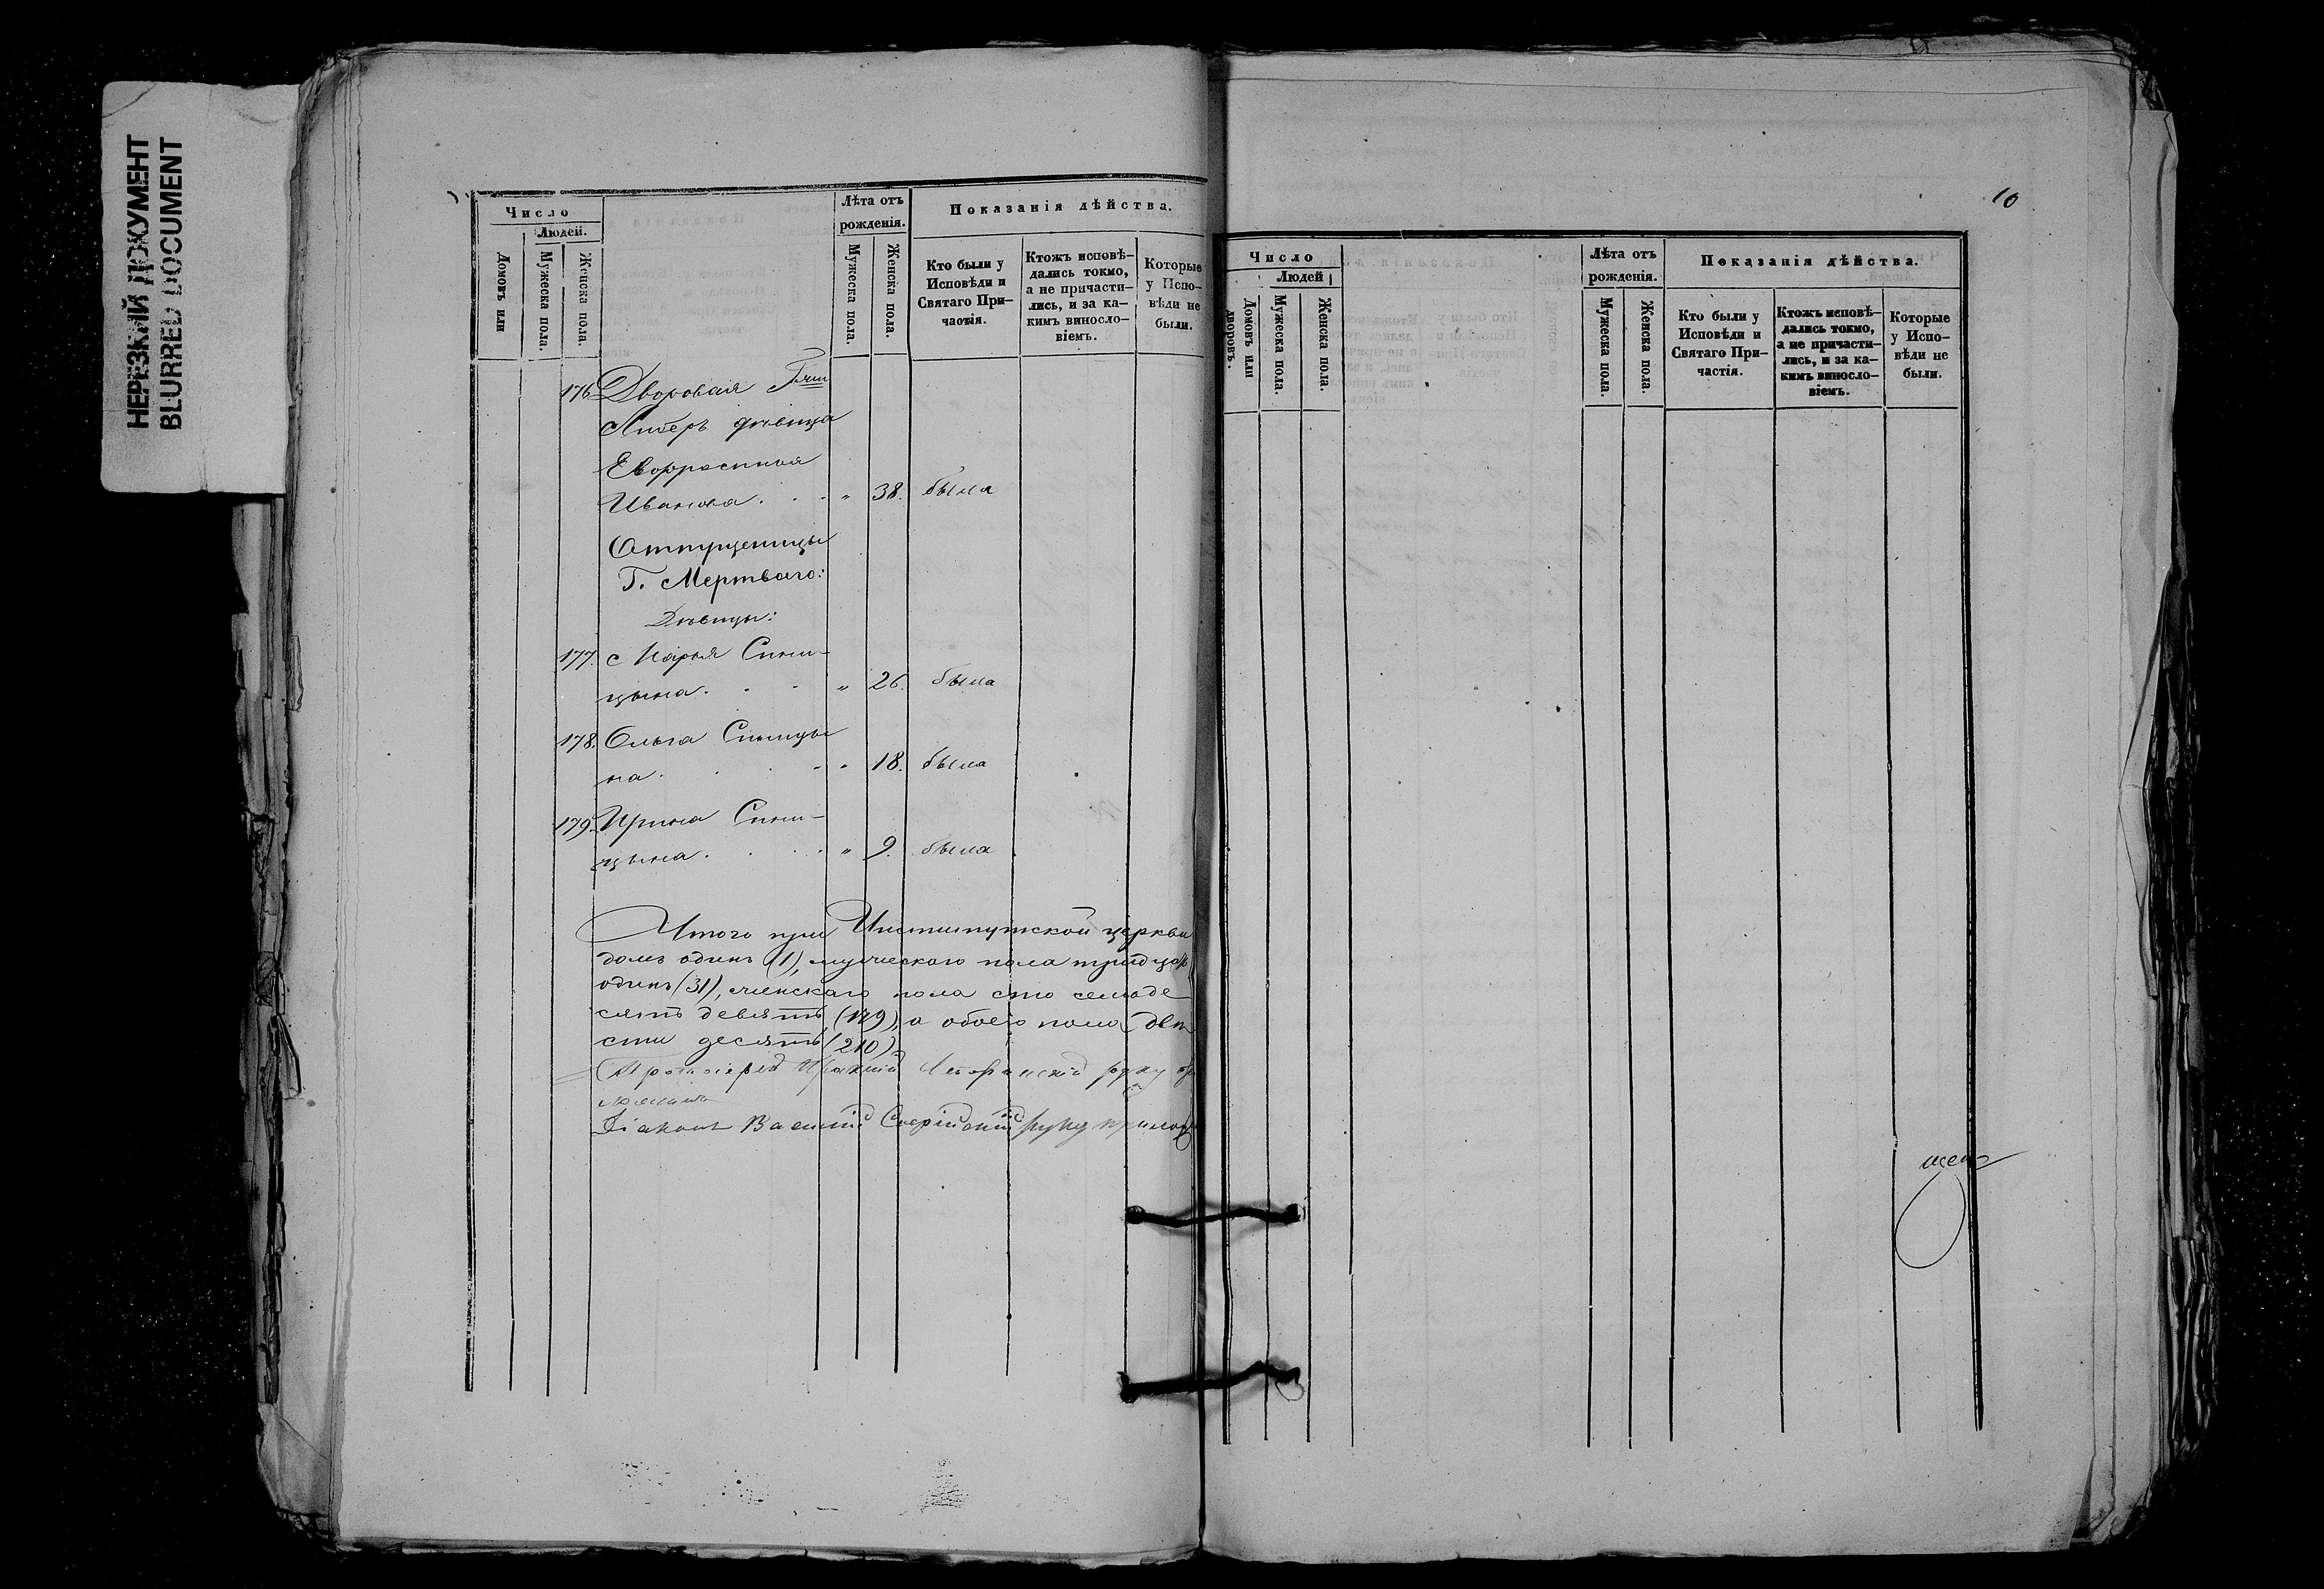 НЕРЕЗКИЙ ДОКУМЕНТ
BLURRED DOCUMENT
Число
Людей.
Домовъ или
Мужеска пола.
Женска пола.
Лѣта отъ
рожденія.
Мужеска пола.
Женска пола.
Показанія дѣйства.
Кто были у
Исповѣди и
Святаго При-
частія.
Ктожъ исповѣ-
дались токмо,
а не причасти-
лись, и за ка-
кимъ винсло-
віемъ.
Которые
у Испо-
вѣди не
были.
176 Дворовая Гжи
Литеръ дѣвица
Евфросинія
Иванова . . . " 38. была
Отпущеницы
Г. Мертваго:
Дѣвицы:
177. Марья Сини-
цына . . . " 26. была
178. Ольга Синицы
на . . . " 18. была
179. Ирина Сини-
цына . . . " 9. была
Итого при Институтской церкви
домъ одинъ (1), мужескаго пола тридцать
одинъ (31), женскаго пола сто семьде
сятъ девять (179), а обоего пола двѣ
сти десять (210)
Протоіерей руку при
ложилъ
Діаконъ Василій руку прило
10
Число
Людей
Домовъ или
дворовъ.
Мужеска пола.
Женска пола.
Лѣта отъ
рожденія.
Мужеска пола.
Женска пола.
Показанія дѣйства.
Кто были у
Исповѣди и
Святаго При-
частія.
Ктожъ исповѣ-
дались токмо,
а не причасти-
лись, и за ка-
кимъ винсло-
віемъ.
Которые
у Испо-
вѣди не
были.